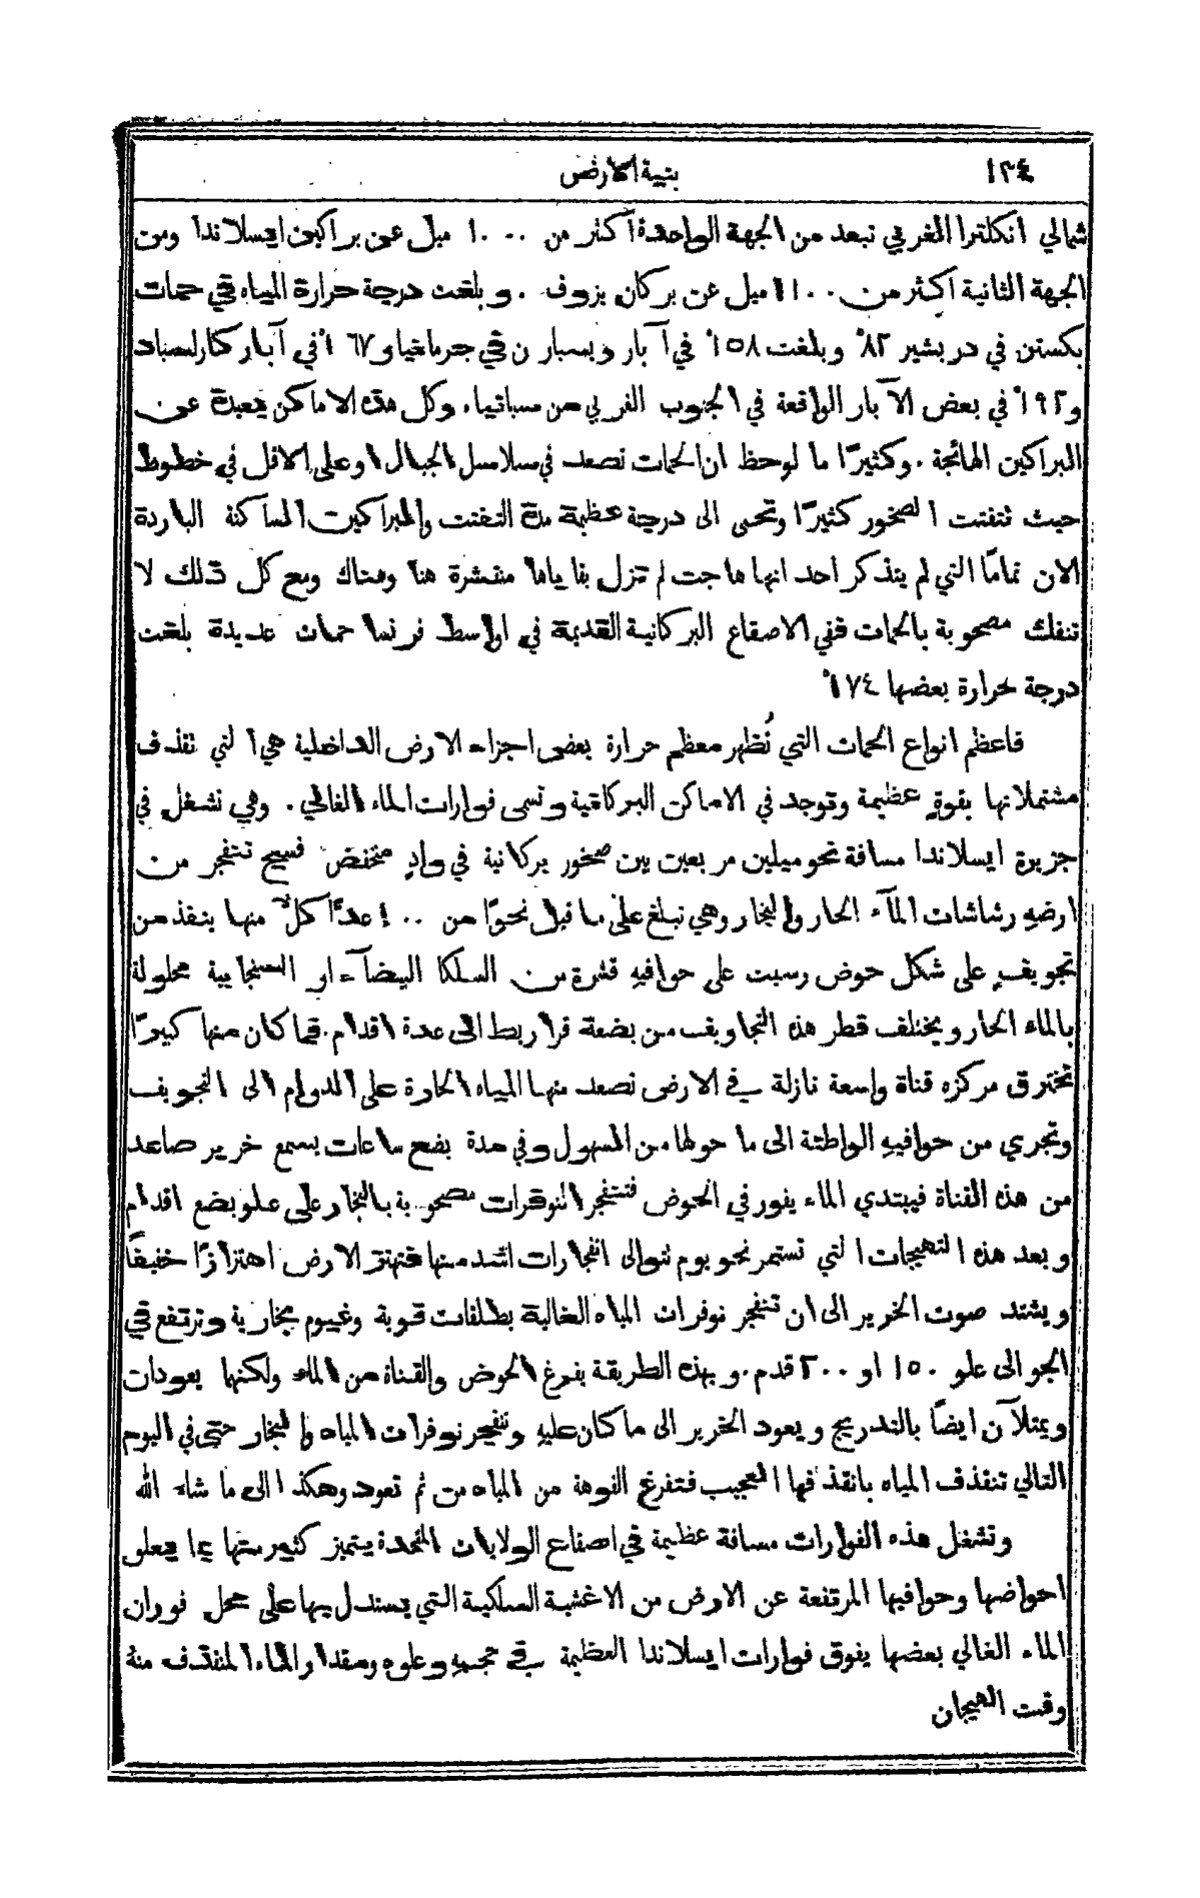 ١٣٤
بنية الارض
شمالي انكلترا الغربي تبعد من الجهة الواحدة اكثر من ١٠٠٠ ميل عن براكين ايسلاندا ومن
الجهة الثانية اكثر من ١١٠٠ ميل عن بركان يزوف . وبلغت درجة حرارة المياه في حمات
بكستن في دربشير ٨٢° وبلغت ١٥٨° في آبار ويسبادن في جرمانيا و١٦٧° في آبار كارلسباد
و١٩٢° في بعض الآبار الواقعة في الجنوب الغربي من سبانيا. وكل هذه الاماكن بعيدة عن
البراكين الهائجة . وكثيرًا ما لوحظ ان الحمات تصعد في سلاسل الجبال او على الاقل في خطوط
حيث تفتتت الصخور كثيرًا وتحمى الى درجة عظيمة مدة التفتت والبراكين الساكنة الباردة
الان تمامًا التي لم يتذكر احد انها هاجت لم تزل بقاياها منتشرة هنا وهناك ومع كل ذلك لا
تنفك مصحوبة بالحمات ففي الاصقاع البركانية القديمة في اواسط فرنسا حمات عديدة بلغت
درجة حرارة بعضها ١٧٤°
فاعظم انواع الحمات التي تُظهر معظم حرارة بعض اجزاء الارض الداخلية هي التي تقذف
مشتملاتها بقوة عظيمة وتوجد في الاماكن البركانية وتسمى فوارات الماء الغالي . وهي تشغل في
جزيرة ايسلاندا مسافة نحو ميلين مربعين بين صخور بركانية في وادٍ منخفض فسيح تتفجر من
ارضه رشاشات المآء الحار والبخار وهي تبلغ على ما قيل نحوًا من ١٠٠ عدًا كلٌ منها ينفذ من
تجويفٍ على شكل حوض رسبت على حوافيه قشرة من السلكا البيضآء او السنجابية محلولة
بالماء الحار ويختلف قطر هذه التجاويف من بضعة قراريط الى عدة اقدام. فما كان منها كبيرًا
تخترق مركزه قناة واسعة نازلة في الارض تصعد منها المياه الحارة على الدوام الى التجويف
وتجري من حوافيه الواطئة الى ما حولها من السهول وفي مدة بضع ساعات يسمع خرير صاعد
من هذه القناة فيبتدي الماء يفور في الحوض فتتفجر النوفرات مصحوبة بالبخار على علو بضع اقدام
وبعد هذه التهيجات التي تستمر نحو يوم تتوالى انفجارات اشد منها فتهتز الارض اهتزازًا خفيفًا
ويشتد صوت الخرير الى ان تنفجر نوفرات المياه الغالية بطلقات قوية وغيوم بخارية وترتفع في
الجو الى علو ١٥٠ او ٢٠٠ قدم. وبهذه الطريقة يفرغ الحوض والقناة من الماء ولكنها يعودان
ويمتلآن ايضًا بالتدريج ويعود الخرير الى ما كان عليه وتنفجر نوفرات المياه والبخار حتى في اليوم
التالي تنقذف المياه بانقذافها العجيب فتفرغ الفوهة من المياه من ثم تعود وهكذا الى ما شاء الله
وتشغل هذه الفوارات مسافة عظيمة في اصقاع الولايات المتحدة يتميز كثير منها بما يعلو
احواضها وحوافيها المرتفعة عن الارض من الاغشية السلكية التي يستدل بها على محل فوران
الماء الغالي بعضها يفوق فوارات ايسلاندا العظيمة في حجمه وعلوه ومقدار الماء المنقذف منهُ
وقت الهيجان